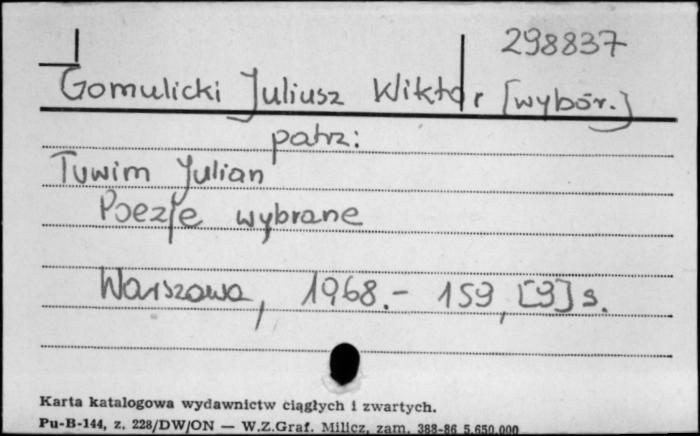 298837
Gomulicki Juliusz Wiktor [wybór.]
patrz:
Tuwim Julian
Poezje wybrane
Warszawa, 1968.- 159, [9] s.
Karta katalogowa wydawnictw ciągłych i zwartych.
Pu-B-144, z. 228/DW/ON — W.Z.Graf. Milicz, zam. 388-86 5.650.000